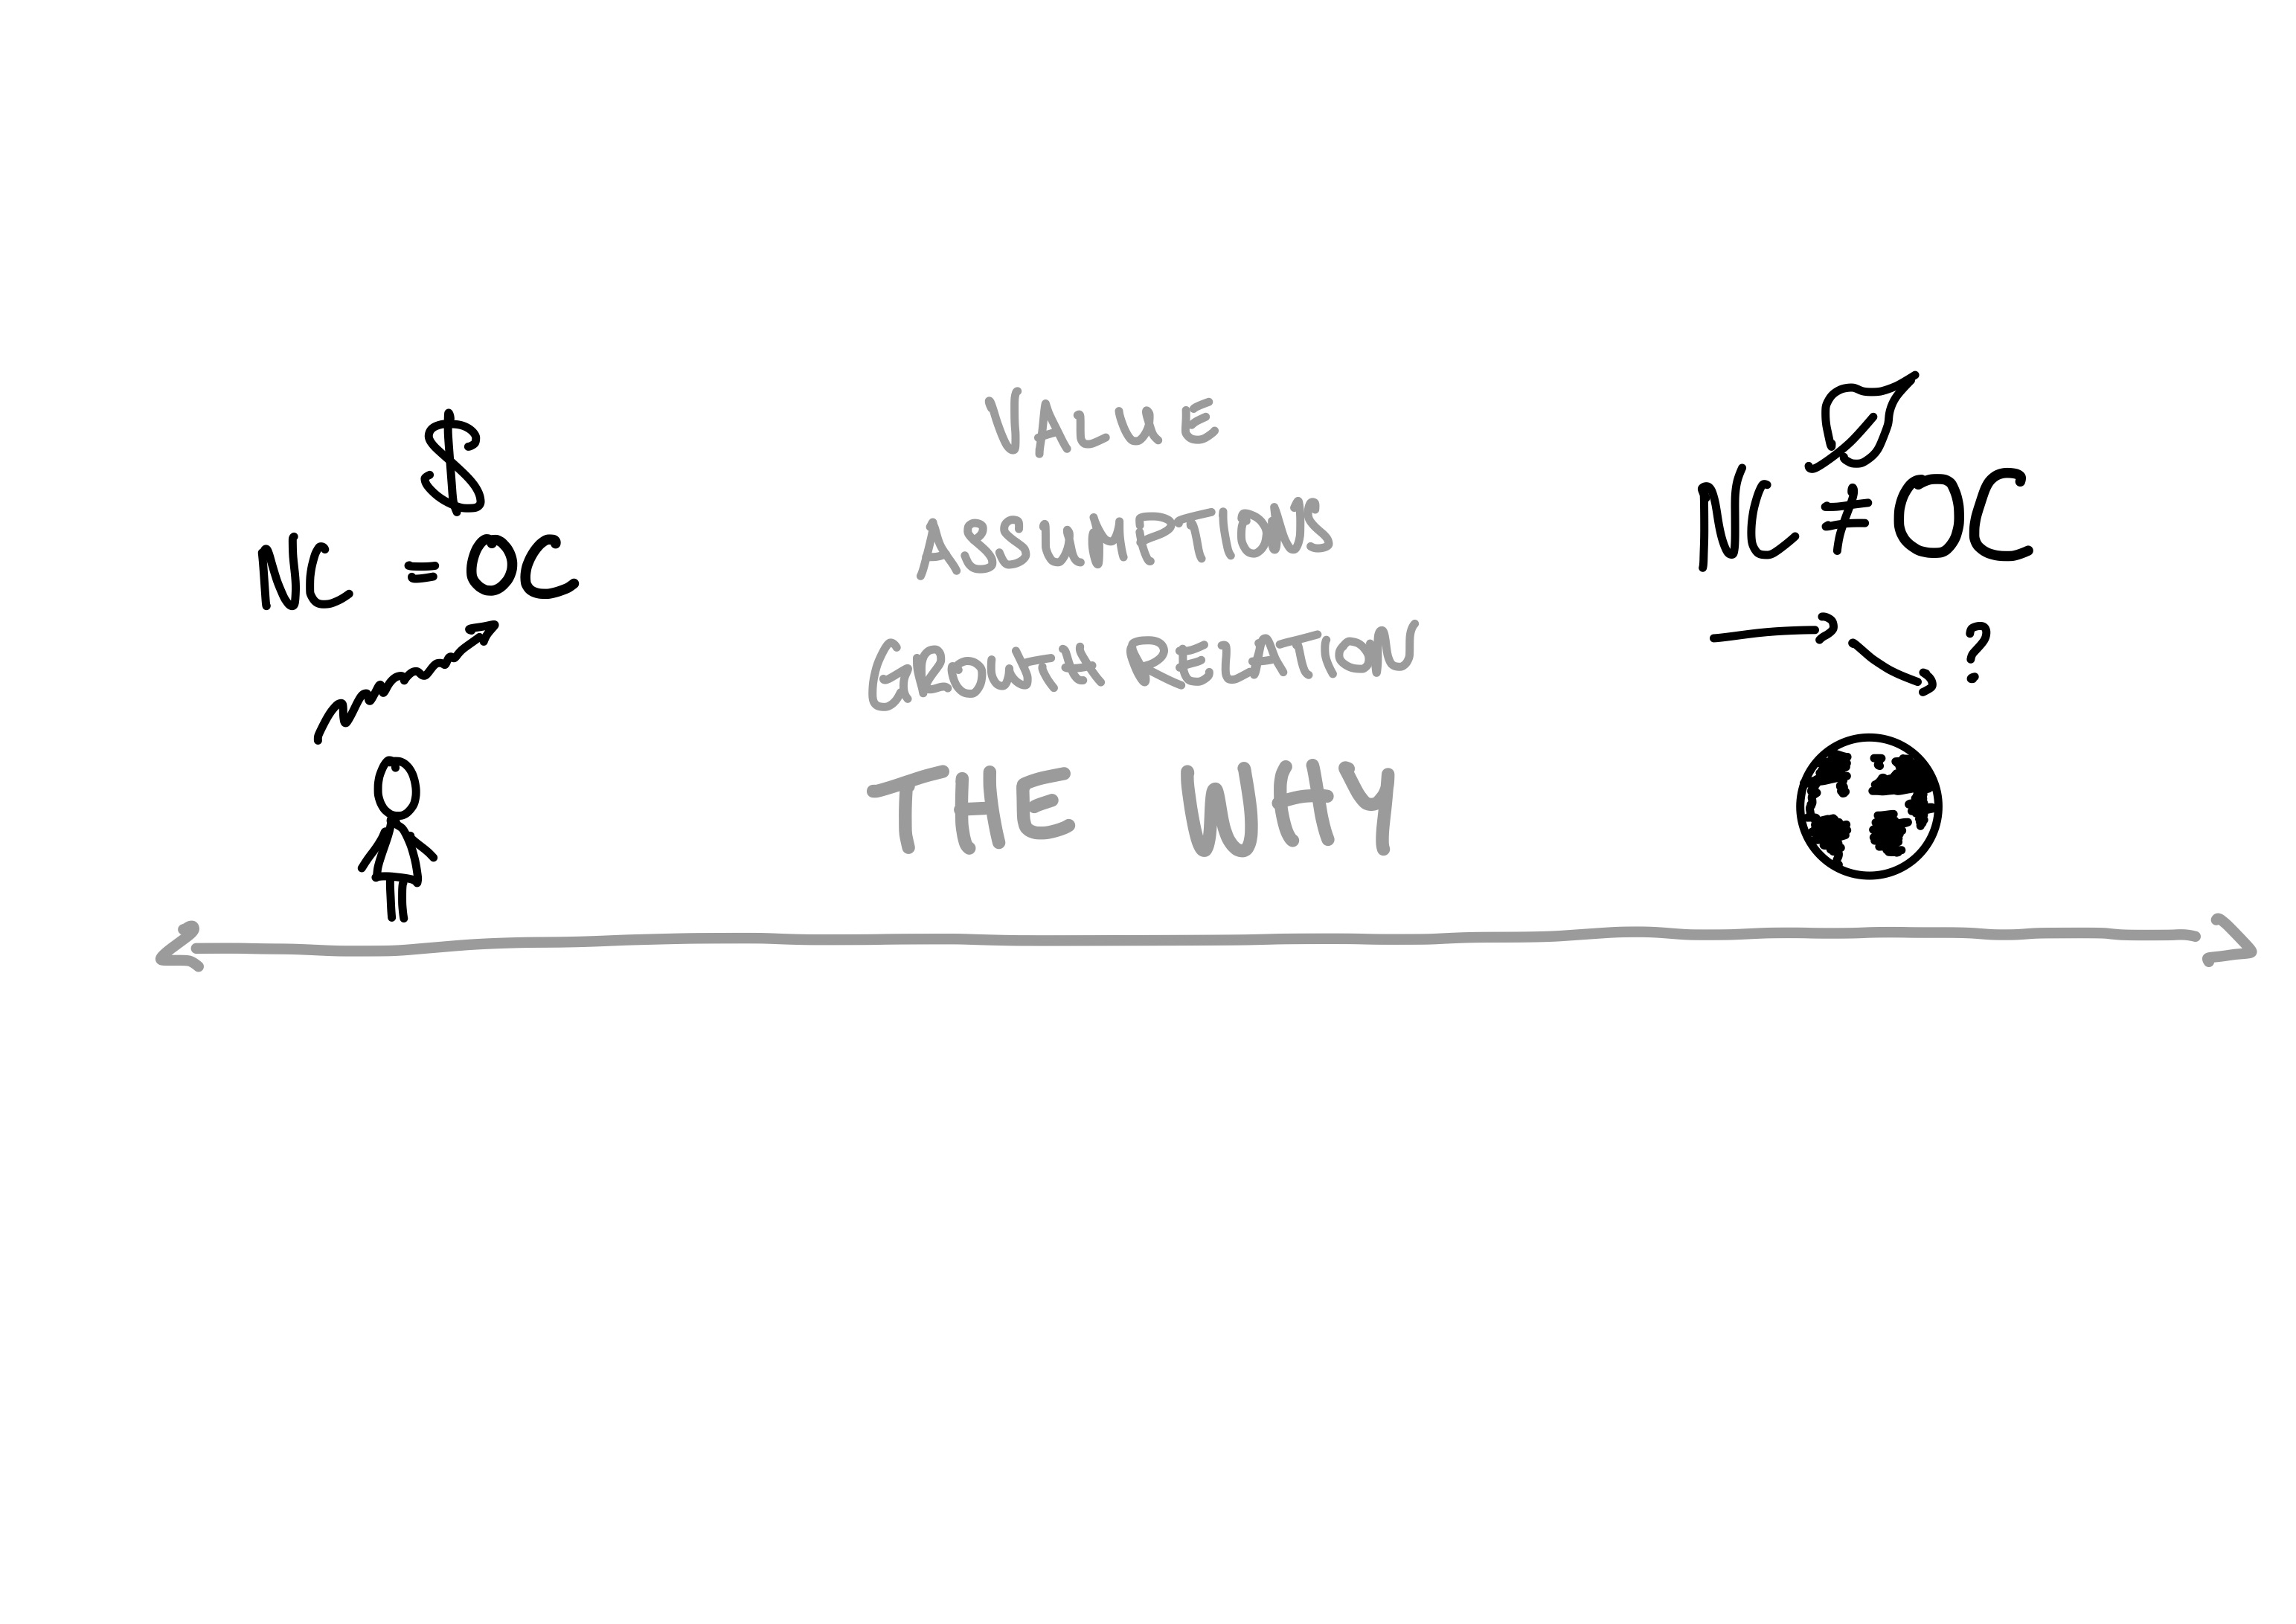 $
NC = OC
VALUE
ASSUMPTIONS
GROWTH RELATION
THE WHY
NC ≠ OC
?